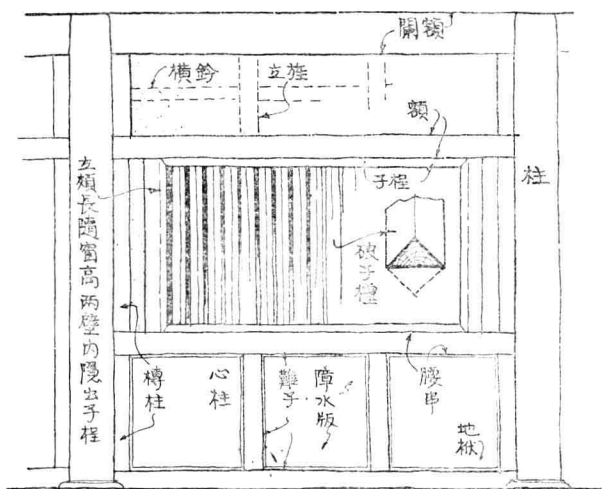 闌額
橫鈐
立旌
額
子桯
柱
立頰長隨窗高兩壁內隱出子桯
破子櫺
槫柱
心柱
難子
障水版
腰串
地栿